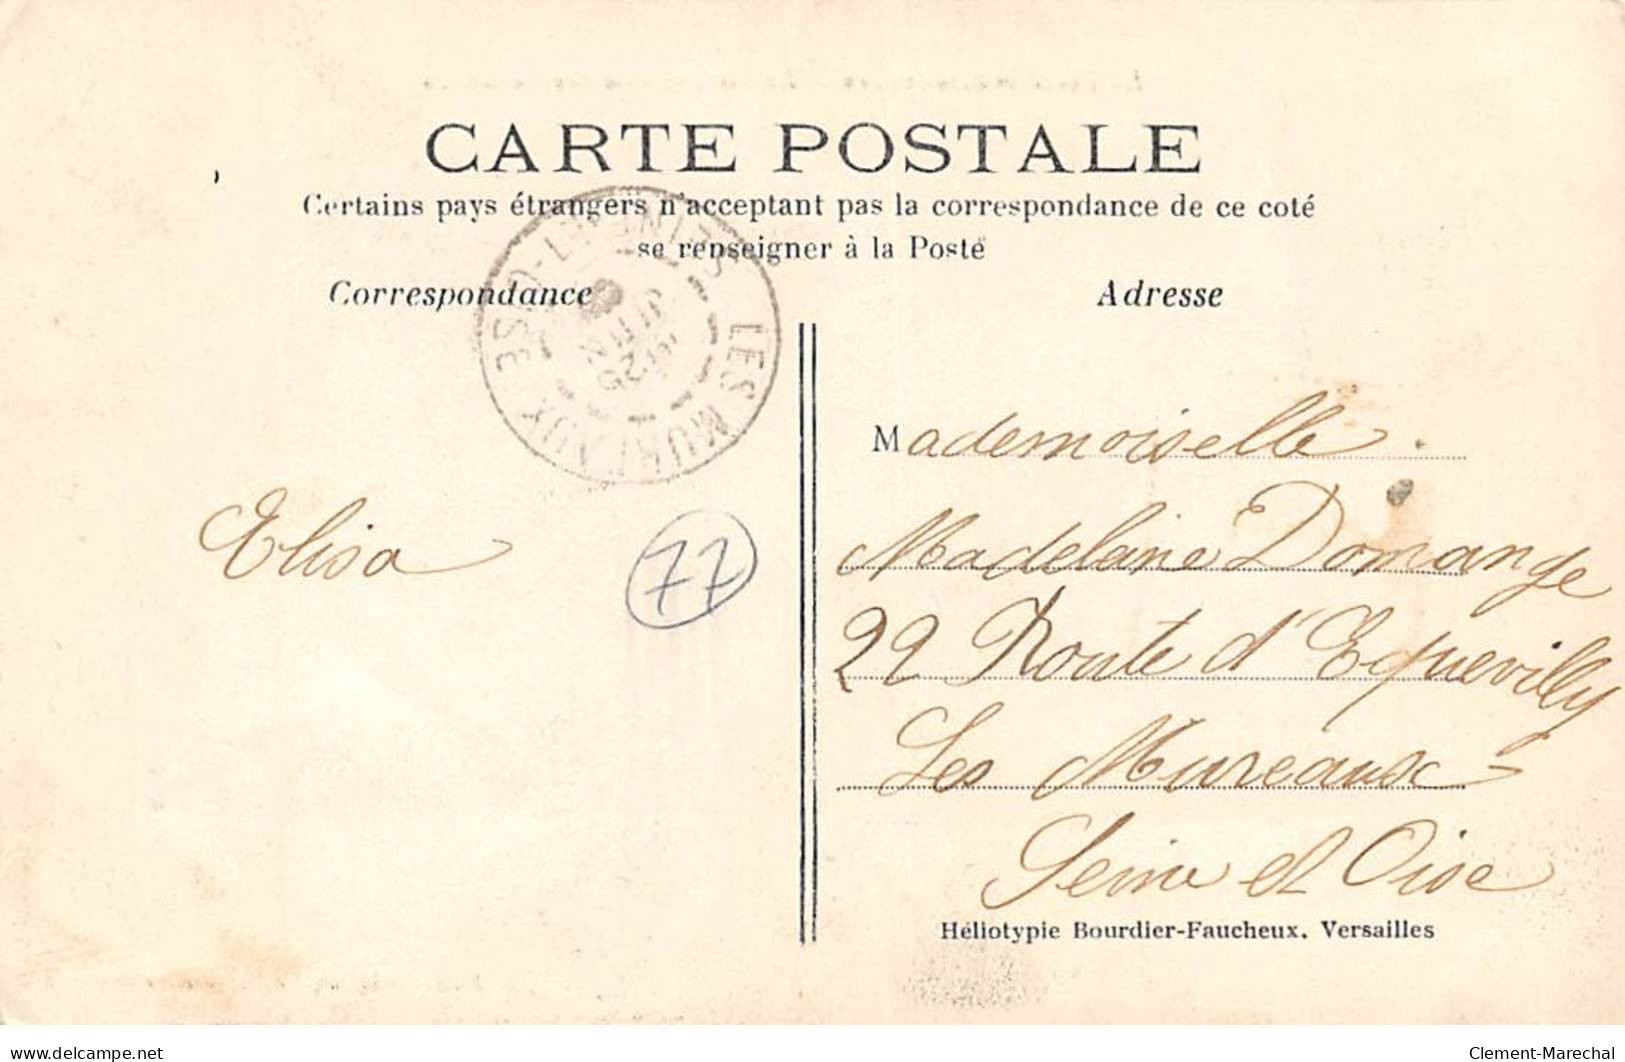 CARTE POSTALE
Certains pays étrangers n'acceptant pas la correspondance de ce coté
se renseigner à la Poste
Correspondance
Adresse
LES MUREAUX SEINE-ET-OISE
Elisa
77
Mademoiselle
Madelaine Domange
22 Route d'Equevilly
Les Mureaux
Seine et Oise
Héliotypie Bourdier-Faucheux, Versailles
www.delcampe.net
Clement-Marechal